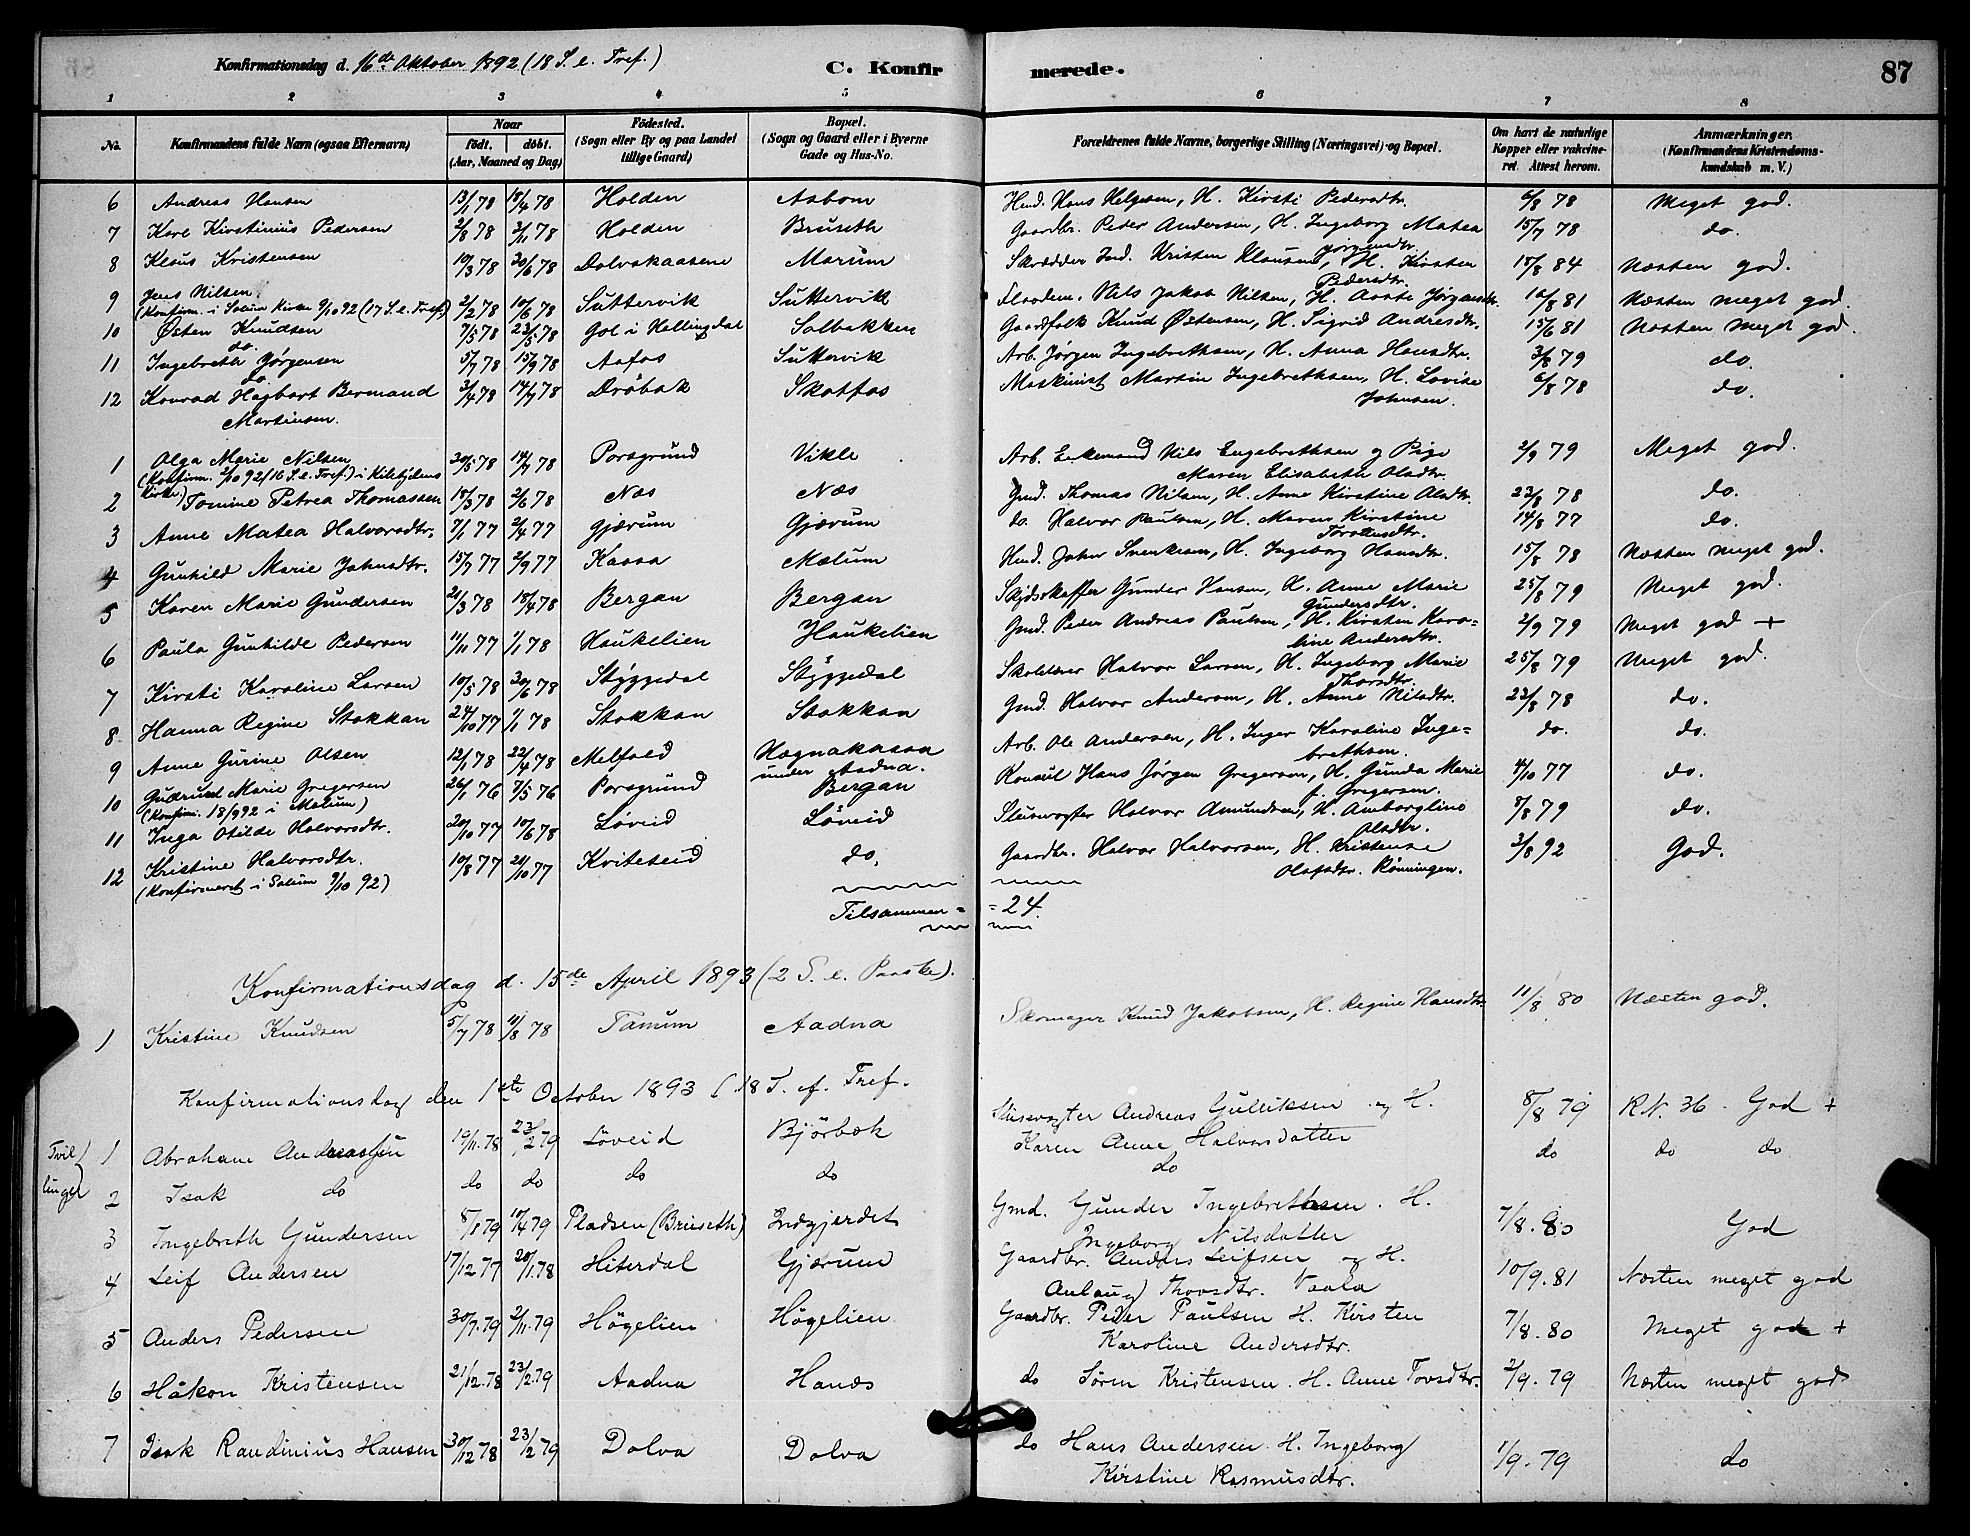 Konfirmationsdag d. 16de Oktober 1892 (18 S. e. Tref.)
C. Konfirmerede.
87
1 2 3 4 5 6 7 8
No. Konfirmandens fulde Navn (ogsaa Efternavn) Naar födt. döbt. (Aar, Maaned og Dag) Födested. (Sogn eller By og paa Landet tillige Gaard) Bopæl. (Sogn og Gaard eller i Byerne Gade og Hus-No. Forældrenes fulde Navne, borgerlige Stilling (Næringsvei) og Bopæl. Om havt de naturlige Kopper eller vakcineret. Attest herom. Anmærkninger. (Konfirmandens Kristendomskundskab m. V.)
6 Andreas Hansen 13/1 78 18/4 78 Holden Aabom Hmd. Hans Helgesen, H. Kirsti Pedersdtr. 6/8 78 Meget god.
7 Karl Kirstinius Pedersen 2/8 78 3/11 78 Holden Bruseth Gaardbr. Peder Andersen, H. Ingeborg Matea Jörgensdtr. 15/7 78 do.
8 Klaus Kristensen 10/3 78 30/6 78 Dolvakaasene Mærum Skrædder Ind. Kristen Klausen, H. Kirsten Pedersdtr. 18/8 84 Næsten god.
9 Jens Nilsen. 2/2 78 10/6 78 Suttervik Suttervik Flaadem. Nils Jakob Nilsen, H. Aaste Jørgensdtr. 10/8 81 Næsten meget god.
(Konfirm. i Solum Kirke 9/10 92 (17 S. e. Tref.)
10 Østen Knudsen 7/5 78 23/5 78 Gol i Hallingdal Solbakken Gaardfolk Knud Østensen, H. Sigrid Andresdtr. 15/6 81 Næsten meget god.
do.
11 Ingebreth Jørgensen 5/7 78 15/9 78 Aafos Suttervik Arb. Jørgen Ingebrethsen, H. Anna Hansdtr. 3/8 79 do.
do
12 Konrad Hagbart Bermand Martinsen. 3/4 78 14/7 78 Dröbak Skotfos Maskinist Martin Ingebrethsen, H. Lovise Johnsen. 6/8 78 do.
1 Olga Marie Nilsen 30/5 78 14/7 78 Porsgrund Vikle Arb. Enkemand Nils Engebrethsen og Pige Maren Elisabeth Olsdtr. 2/9 79 Meget god.
(Konfirm. 2/10 92 (16 S. e. Tref.) i Kilebygdens Kirke)
2 Tomine Petrea Thomassen 18/3 78 2/6 78 Næs Næs Gmd. Thomas Nilsen, H. Anne Kirstine Olsdtr. 23/8 78 do.
3 Anne Matea Halvorsdtr. 7/1 77 2/4 77 Gjærum Gjærum do. Halvor Paulsen, H. Maren Kirstine 14/8 77 do.
4 Gunhild Marie Johnsdtr. 15/7 77 2/9 77 Kaasa Mælum Hmd. John Svenkesen, H. Ingeborg Hansdtr. 15/8 78 Næsten meget god.
5 Karen Marie Gundersen 21/3 78 18/4 78 Bergan Bergan Skydsskaffer Gunder Hansen, H. Anne Marie Gundersdtr. 25/8 79 Meget god.
6 Paula Gunhilde Pedersen 11/11 77 1/1 78 Haukelien Haukelien Gmd. Peder Andreas Paulsen, H. Kirsten Karoline Andersdtr. 2/9 79 Meget god +
7 Kirsti Karoline Larsen 10/5 78 30/6 78 Styggedal Styggedal Skolelærer Halvor Larsen, H. Ingeborg Marie Thorsdtr. 25/8 79 Meget god.
8 Hanna Regine Stokkan 24/10 77 1/1 78 Stokkan Stokkan Gmd. Halvor Andersen, H. Anne Nilsdtr. 23/8 78 do.
9 Anne Gurine Olsen 12/1 78 22/4 78 Melfald Hægnakaasa under Aadna. Arb. Ole Andersen, H. Inger Karoline Ingebrethsen. do. do.
10 Gudrund Marie Gregersen 26/1 76 7/5 76 Porsgrund Bergan Konsul Hans Jørgen Gregersen, H. Gunda Marie f. Gregersen. 4/10 77 do.
(Konfirm. 18/9 92 i Mælum)
11 Inga Otilde Halvorsdtr. 20/10 77 10/6 78 Løveid Løveid Slusevogter Halvor Amundsen, H. Amborgline Olsdtr. 8/8 79 do.
12 Kristine Halvorsdtr. 10/8 77 21/10 77 Kviteseid do. Gaardbr. Halvor Halvorsen, H. Kristense Olafsdtr. Rønningen. 3/8 92 God.
(Konfirmeret i Solum 9/10 92)
Tilsammen = = 24.
Konfirmationsdag d. 15de April 1893 (2 S. e. Paaske).
1 Kristine Knudsen 5/7 78 11/8 78 Tanum Aadna Skomager Knud Jakobsen, H. Regine Hansdtr. 11/8 80 Næsten god.
Konfirmationsdag den 1ste October 1893 (18 S. ef. Tref.
Tvillinger
1 Abraham Andreassen 19/11. 78 23/2 79 Löveid Björbæk Slusevogter Andreas Gulliksen og H. Karen Anne Halvorsdatter 8/8 79 RN. 36. God +
2 Isak do do do do do do do do do
3 Ingebreth Gundersen 8/1 79 10/4 79 Pladsen (Bruseth) Indgjerdet Gmd. Gunder Ingebrethsen. H. Ingeborg Nilsdatter 7/8. 80 God
4 Leif Andersen 17/12 77 20/1. 78 Hiterdal Gjærum Gaardbr. Anders Leifsen og H. Aslaug Thovsdtr. Vaala 10/9. 81 Næsten meget god
5 Anders Pedersen 30/7. 79 2/11. 79 Högelien Högelien Gaardbr. Peder Paulsen H. Kirsten Karoline Andersdtr. 7/8. 80 Meget god +
6 Håkon Kristensen 21/12. 78 23/2. 79 Aadna Hanæs do Søren Kristensen. H. Anne Tovsdtr. 2/9. 79 Næsten meget god
7 Isak Randinius Hansen 30/12 78 23/2 79 Dolva Dolva do Hans Andersen. H. Ingeborg Kirstine Rasmusdtr. 1/9. 79 do